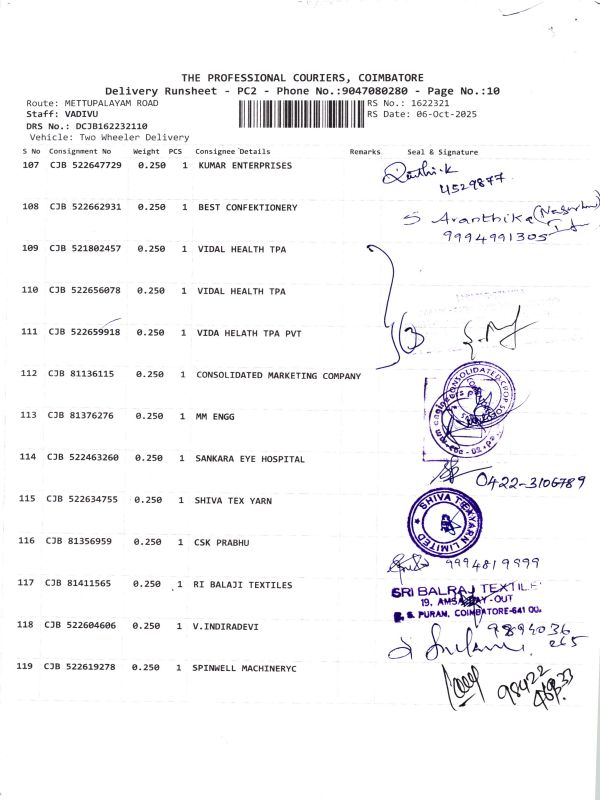 THE PROFESSIONAL COURIERS, COIMBATORE
Delivery Runsheet - PC2 - Phone No.:9047080280 - Page No.:10
Route: METTUPALAYAM ROAD RS No.: 1622321
Staff: VADIVU RS Date: 06-Oct-2025
DRS No.: DCJB162232110
Vehicle: Two Wheeler Delivery
S No Consignment No Weight PCS Consignee Details Remarks Seal & Signature
107 CJB 522647729 0.250 1 KUMAR ENTERPRISES
4529877
108 CJB 522662931 0.250 1 BEST CONFEKTIONERY
S Aranthika
9994991305
109 CJB 521802457 0.250 1 VIDAL HEALTH TPA
110 CJB 522656078 0.250 1 VIDAL HEALTH TPA
111 CJB 522659918 0.250 1 VIDA HELATH TPA PVT
(3)
112 CJB 81136115 0.250 1 CONSOLIDATED MARKETING COMPANY
113 CJB 81376276 0.250 1 MM ENGG
114 CJB 522463260 0.250 1 SANKARA EYE HOSPITAL
0422-3106789
115 CJB 522634755 0.250 1 SHIVA TEX YARN
SHIVA TEXYARN LIMITED
116 CJB 81356959 0.250 1 CSK PRABHU
9994819999
117 CJB 81411565 0.250 1 RI BALAJI TEXTILES
SRI BALRAJ TEXTILE
R. S. PURAM, COIMBATORE-641 00
118 CJB 522604606 0.250 1 V.INDIRADEVI
9894036
265
119 CJB 522619278 0.250 1 SPINWELL MACHINERYC
98422